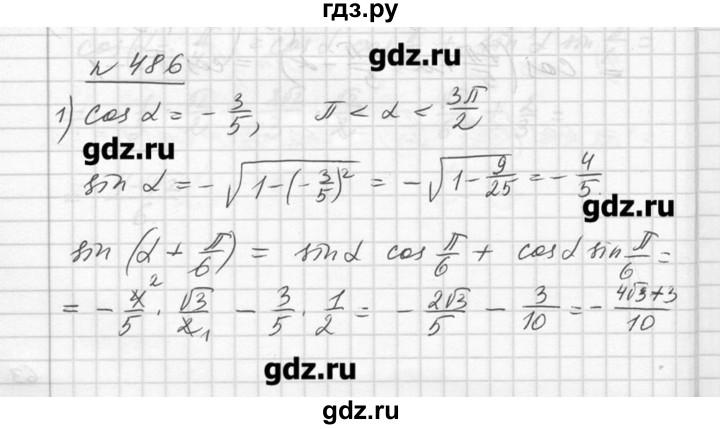 гдз.ру
gdz.ru
№ 486
1) cos α = - 3/5, π < α < 3π/2
gdz.ru
sin α = - √(1-(-3/5)²) = - √(1 - 9/25) = - 4/5.
gdz.ru
sin (α + π/6) = sin α cos π/6 + cos α sin π/6 =
= - 4²/5 · √3/2₁ - 3/5 · 1/2 = - 2√3/5 - 3/10 = - 4√3+3/10
gdz.ru
gdz.ru